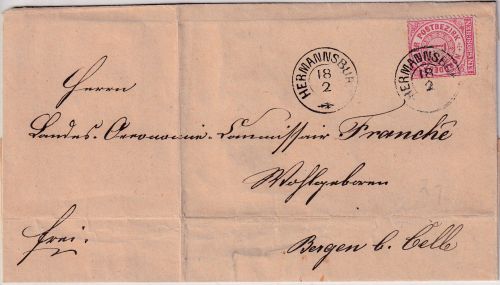 NORDDEUTSCHER
POSTBEZIRK
HERMANNSBURG
18
2
HERMANNSBURG
18
2
Herrn
Landes-Oeconomie-Commissair Francke
Wohlgeboren
frei.
Bergen b. Celle